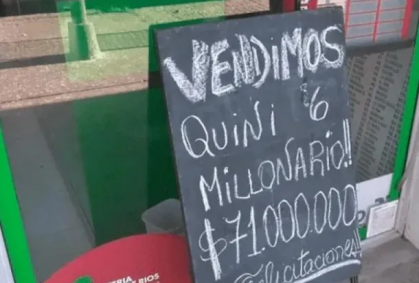 VENDIMOS
QUINI 6
MILLONARIO!!
$71.000.000.
Felicitaciones!!
RIOS